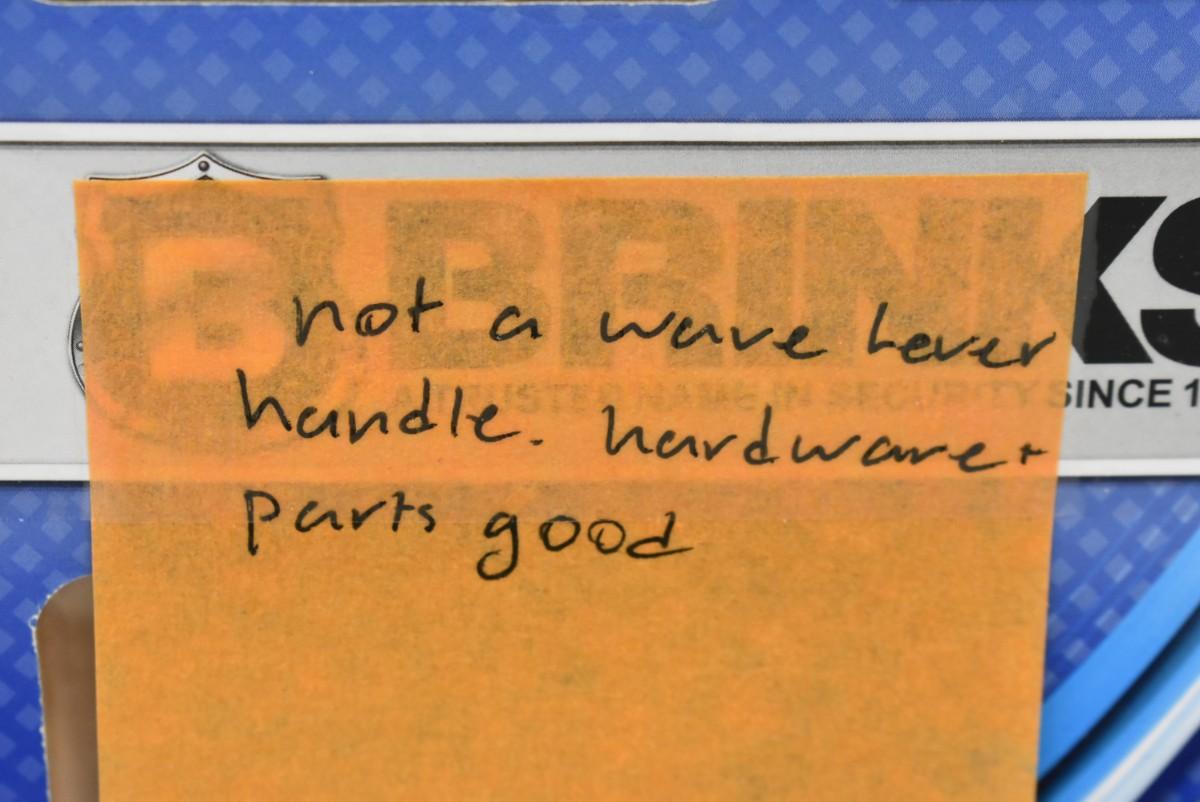 BRINKS
A TRUSTED NAME IN SECURITY SINCE 1
not a wave Lever
handle. hardware +
parts good